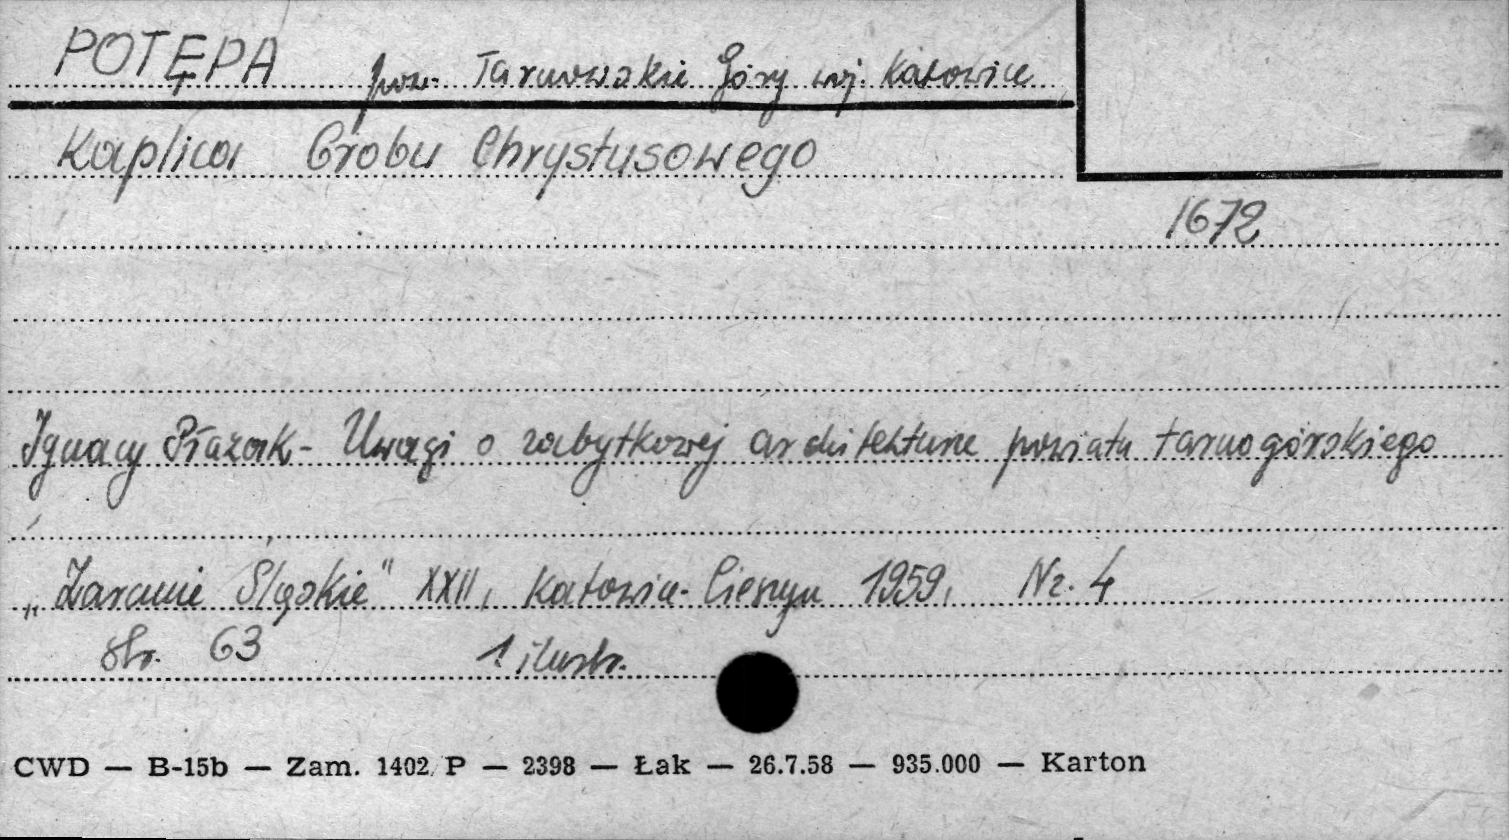 POTĘPA pow. Tarnowskie Góry woj. Katowice
Kaplica Grobu Chrystusowego
1672
Ignacy Płazak - Uwagi o zabytkowej architekturze powiatu tarnogórskiego
„Zaranie Śląskie" XXII, Katowice - Cieszyn 1959, Nr. 4
str. 63 1 ilustr.
CWD — B-15b — Zam. 1402 P — 2398 — Łak — 26.7.58 — 935.000 — Karton